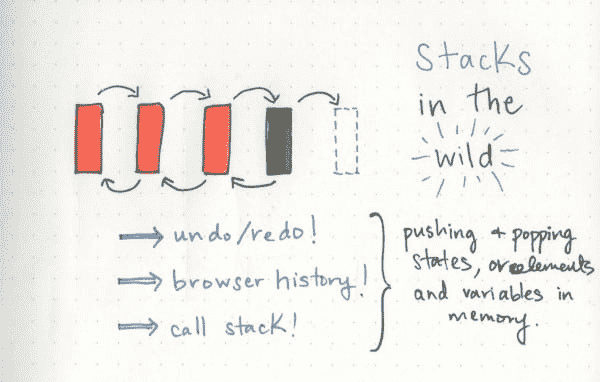 Stacks
in the
wild
undo/redo!
browser history!
call stack!
pushing + popping
states, or elements
and variables in
memory.